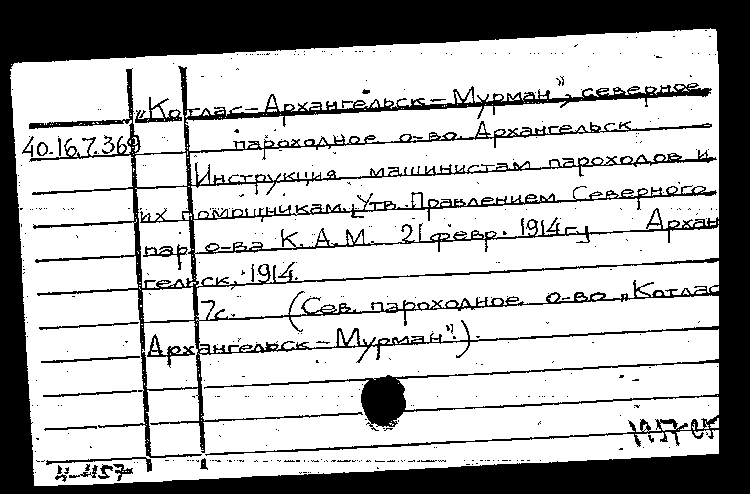 „Котлас-Архангельск-Мурман", северное
40.16.7.369 пароходное о-во. Архангельск
Инструкция машинистам пароходов и
их помощникам. [Утв. Правлением Северного
пар. о-ва К. А. М. 21 февр. 1914 г.] Архан
гельск, 1914.
7с. (Сев. пароходное о-во „Котлас
Архангельск-Мурман".)